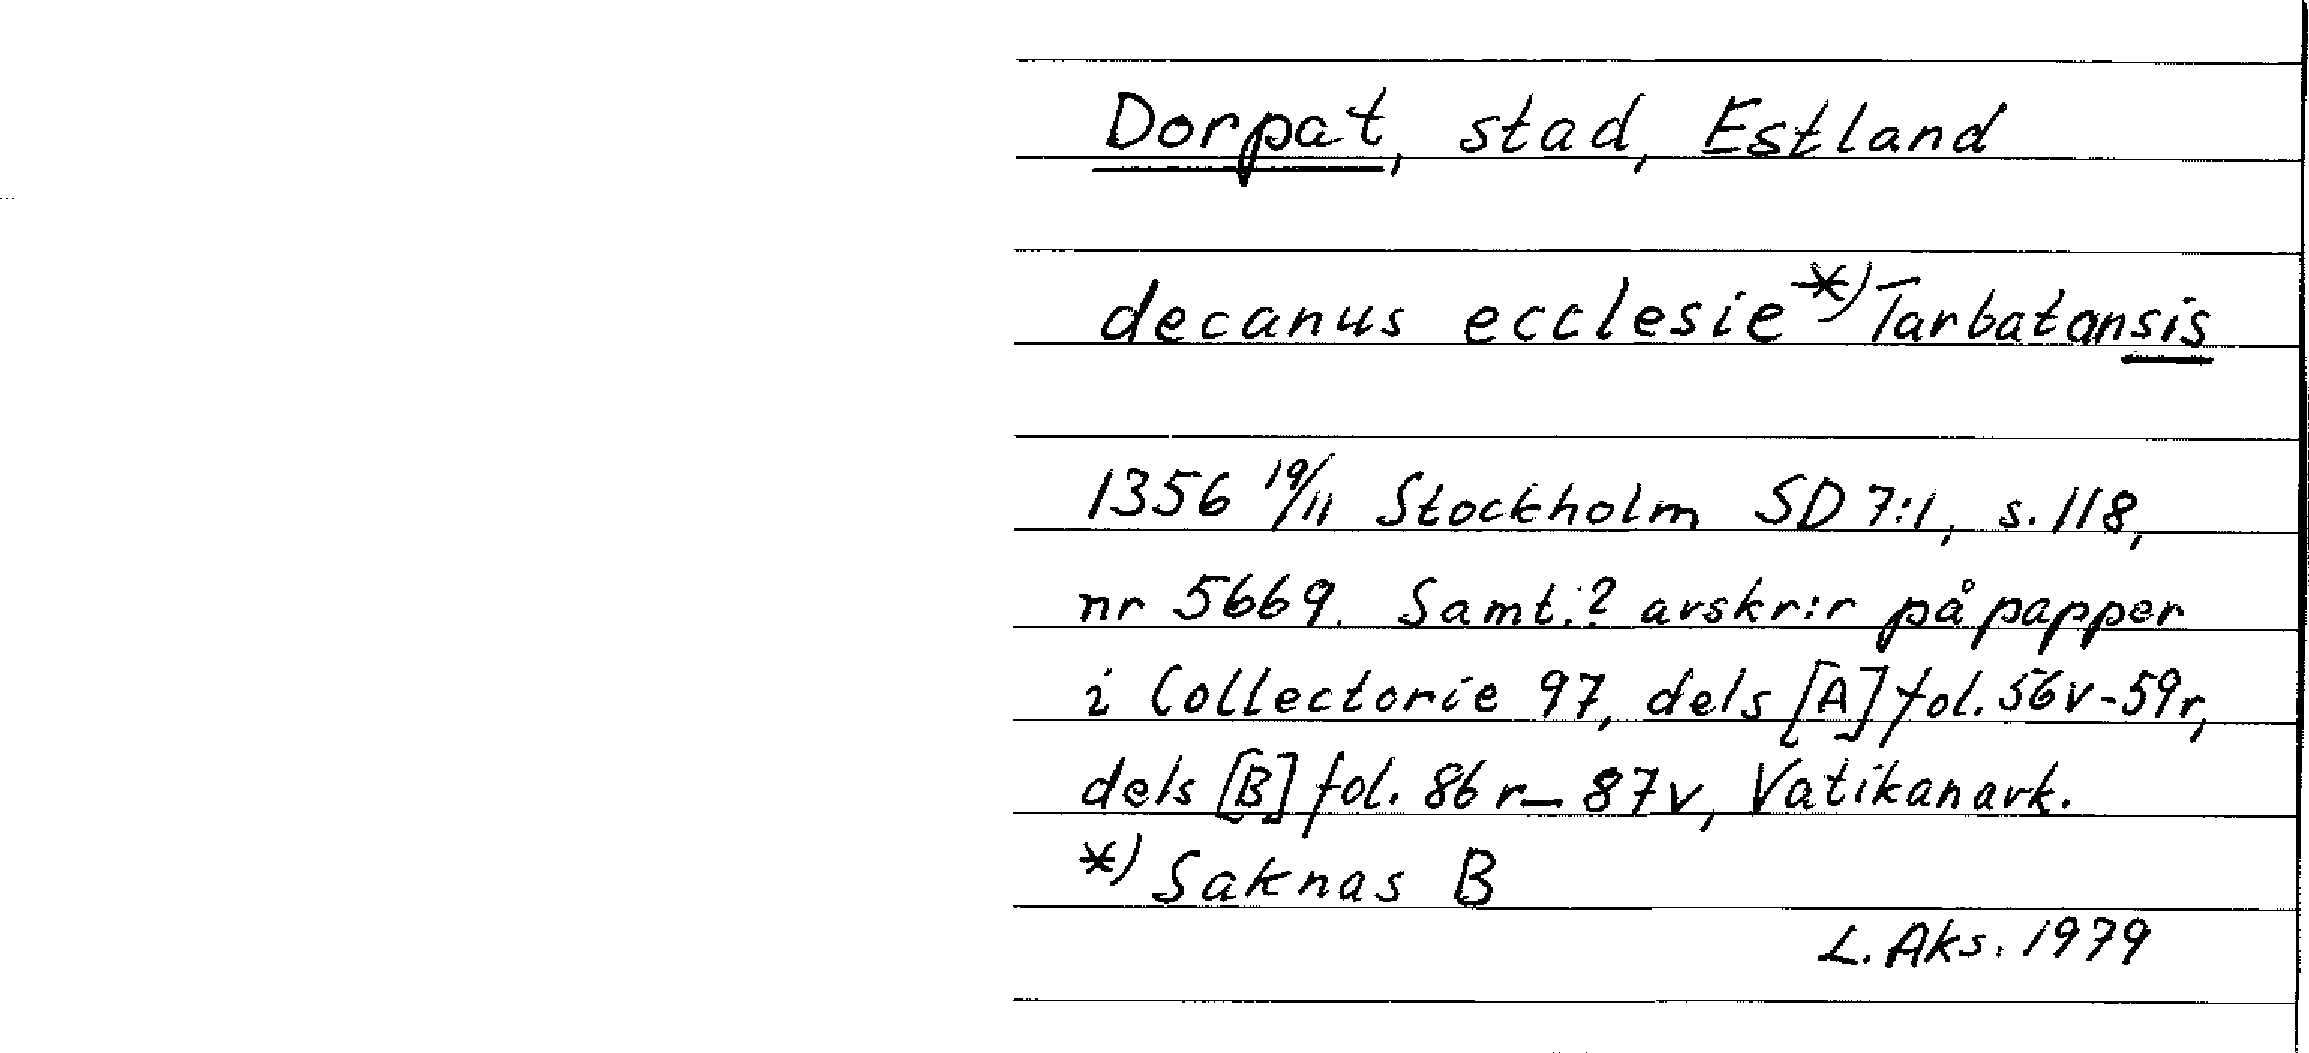 Dorpat, stad, Estland
decanus ecclesie *) Tarbatansis
1356 19/11 Stockholm SD 7:1, s. 118,
nr 5669. Samt.? avskr:r på papper
i Collectorie 97, dels [A] fol. 56v-59r,
dels [B] fol. 86r-87v, Vatikanark.
*) Saknas B
L. Aks. 1979